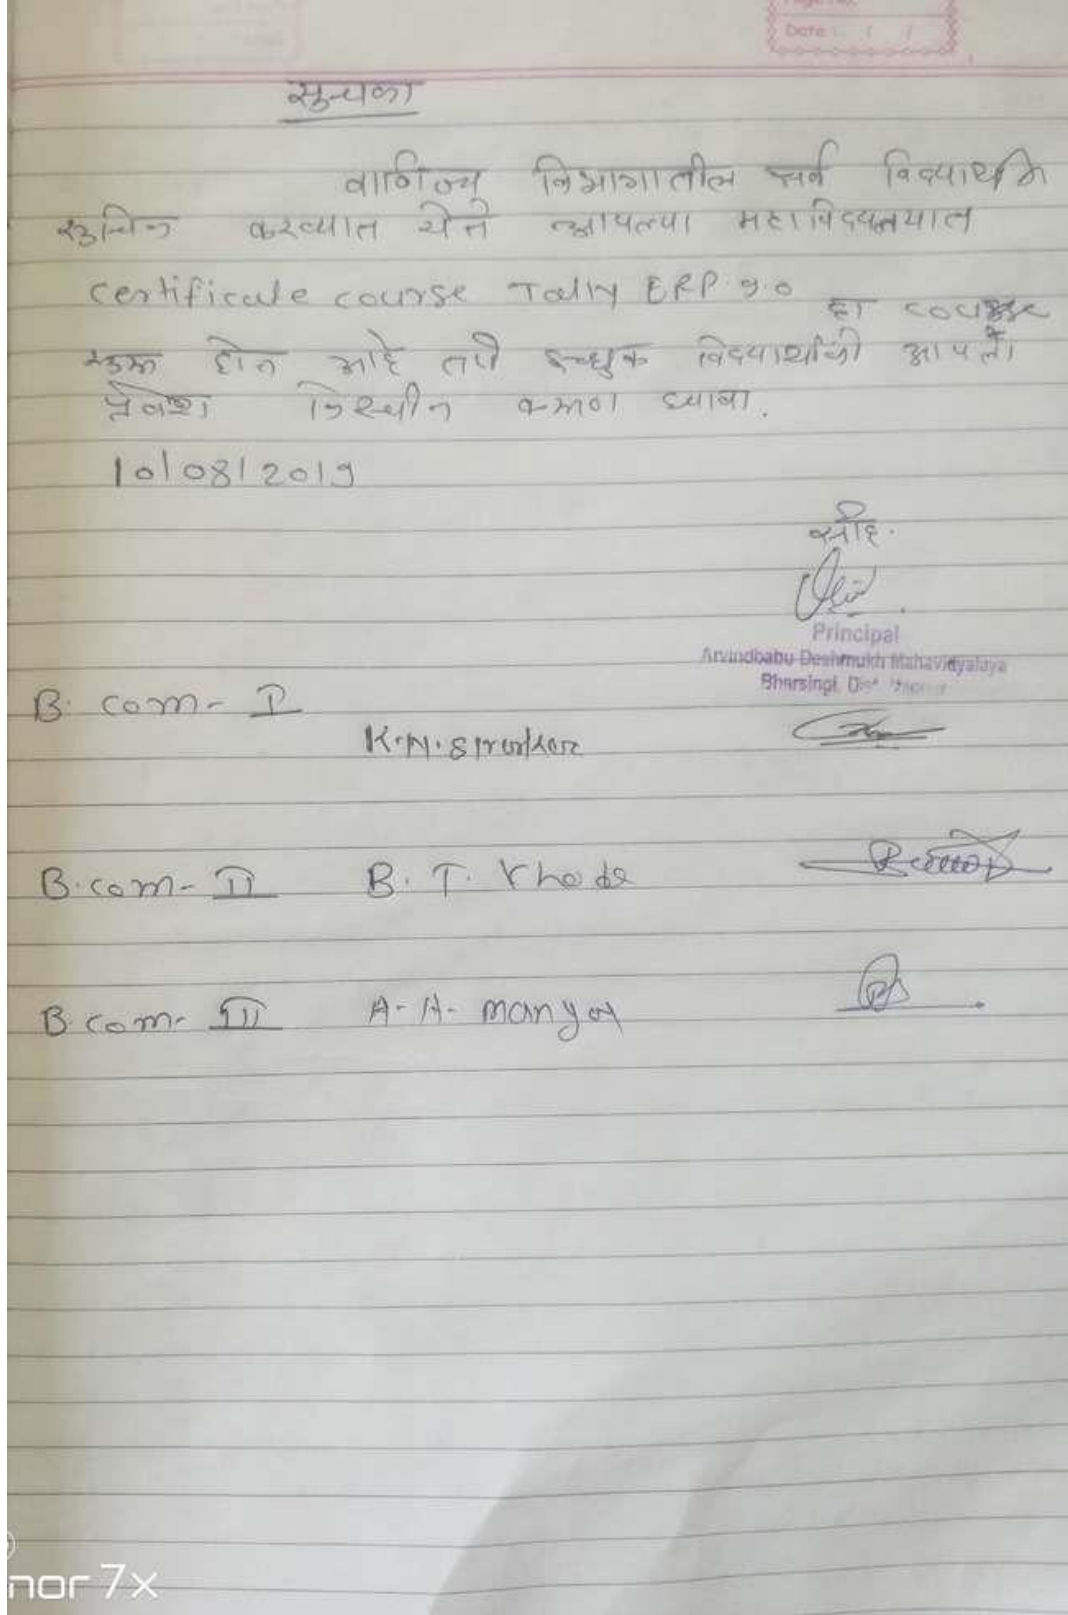 Date :   /   /
सुचना
वाणिज्य विभागातील सर्व विद्यार्थांना
सुचित करण्यात येते आपल्या महाविद्यालयात
certificate course Tally ERP. 9.0
हा course
सुरू होत आहे तरी इच्छुक विद्यार्थांनी आपले
प्रवेश निश्चीत करून घ्यावा.
10/08/2019
सही.
Principal
Arvindbabu Deshmukh Mahavidyalaya
Bharsingi, Dist
B. com - I
K.N.
B.com - II B. T. Khode
B.com - III A. A.
nor 7x